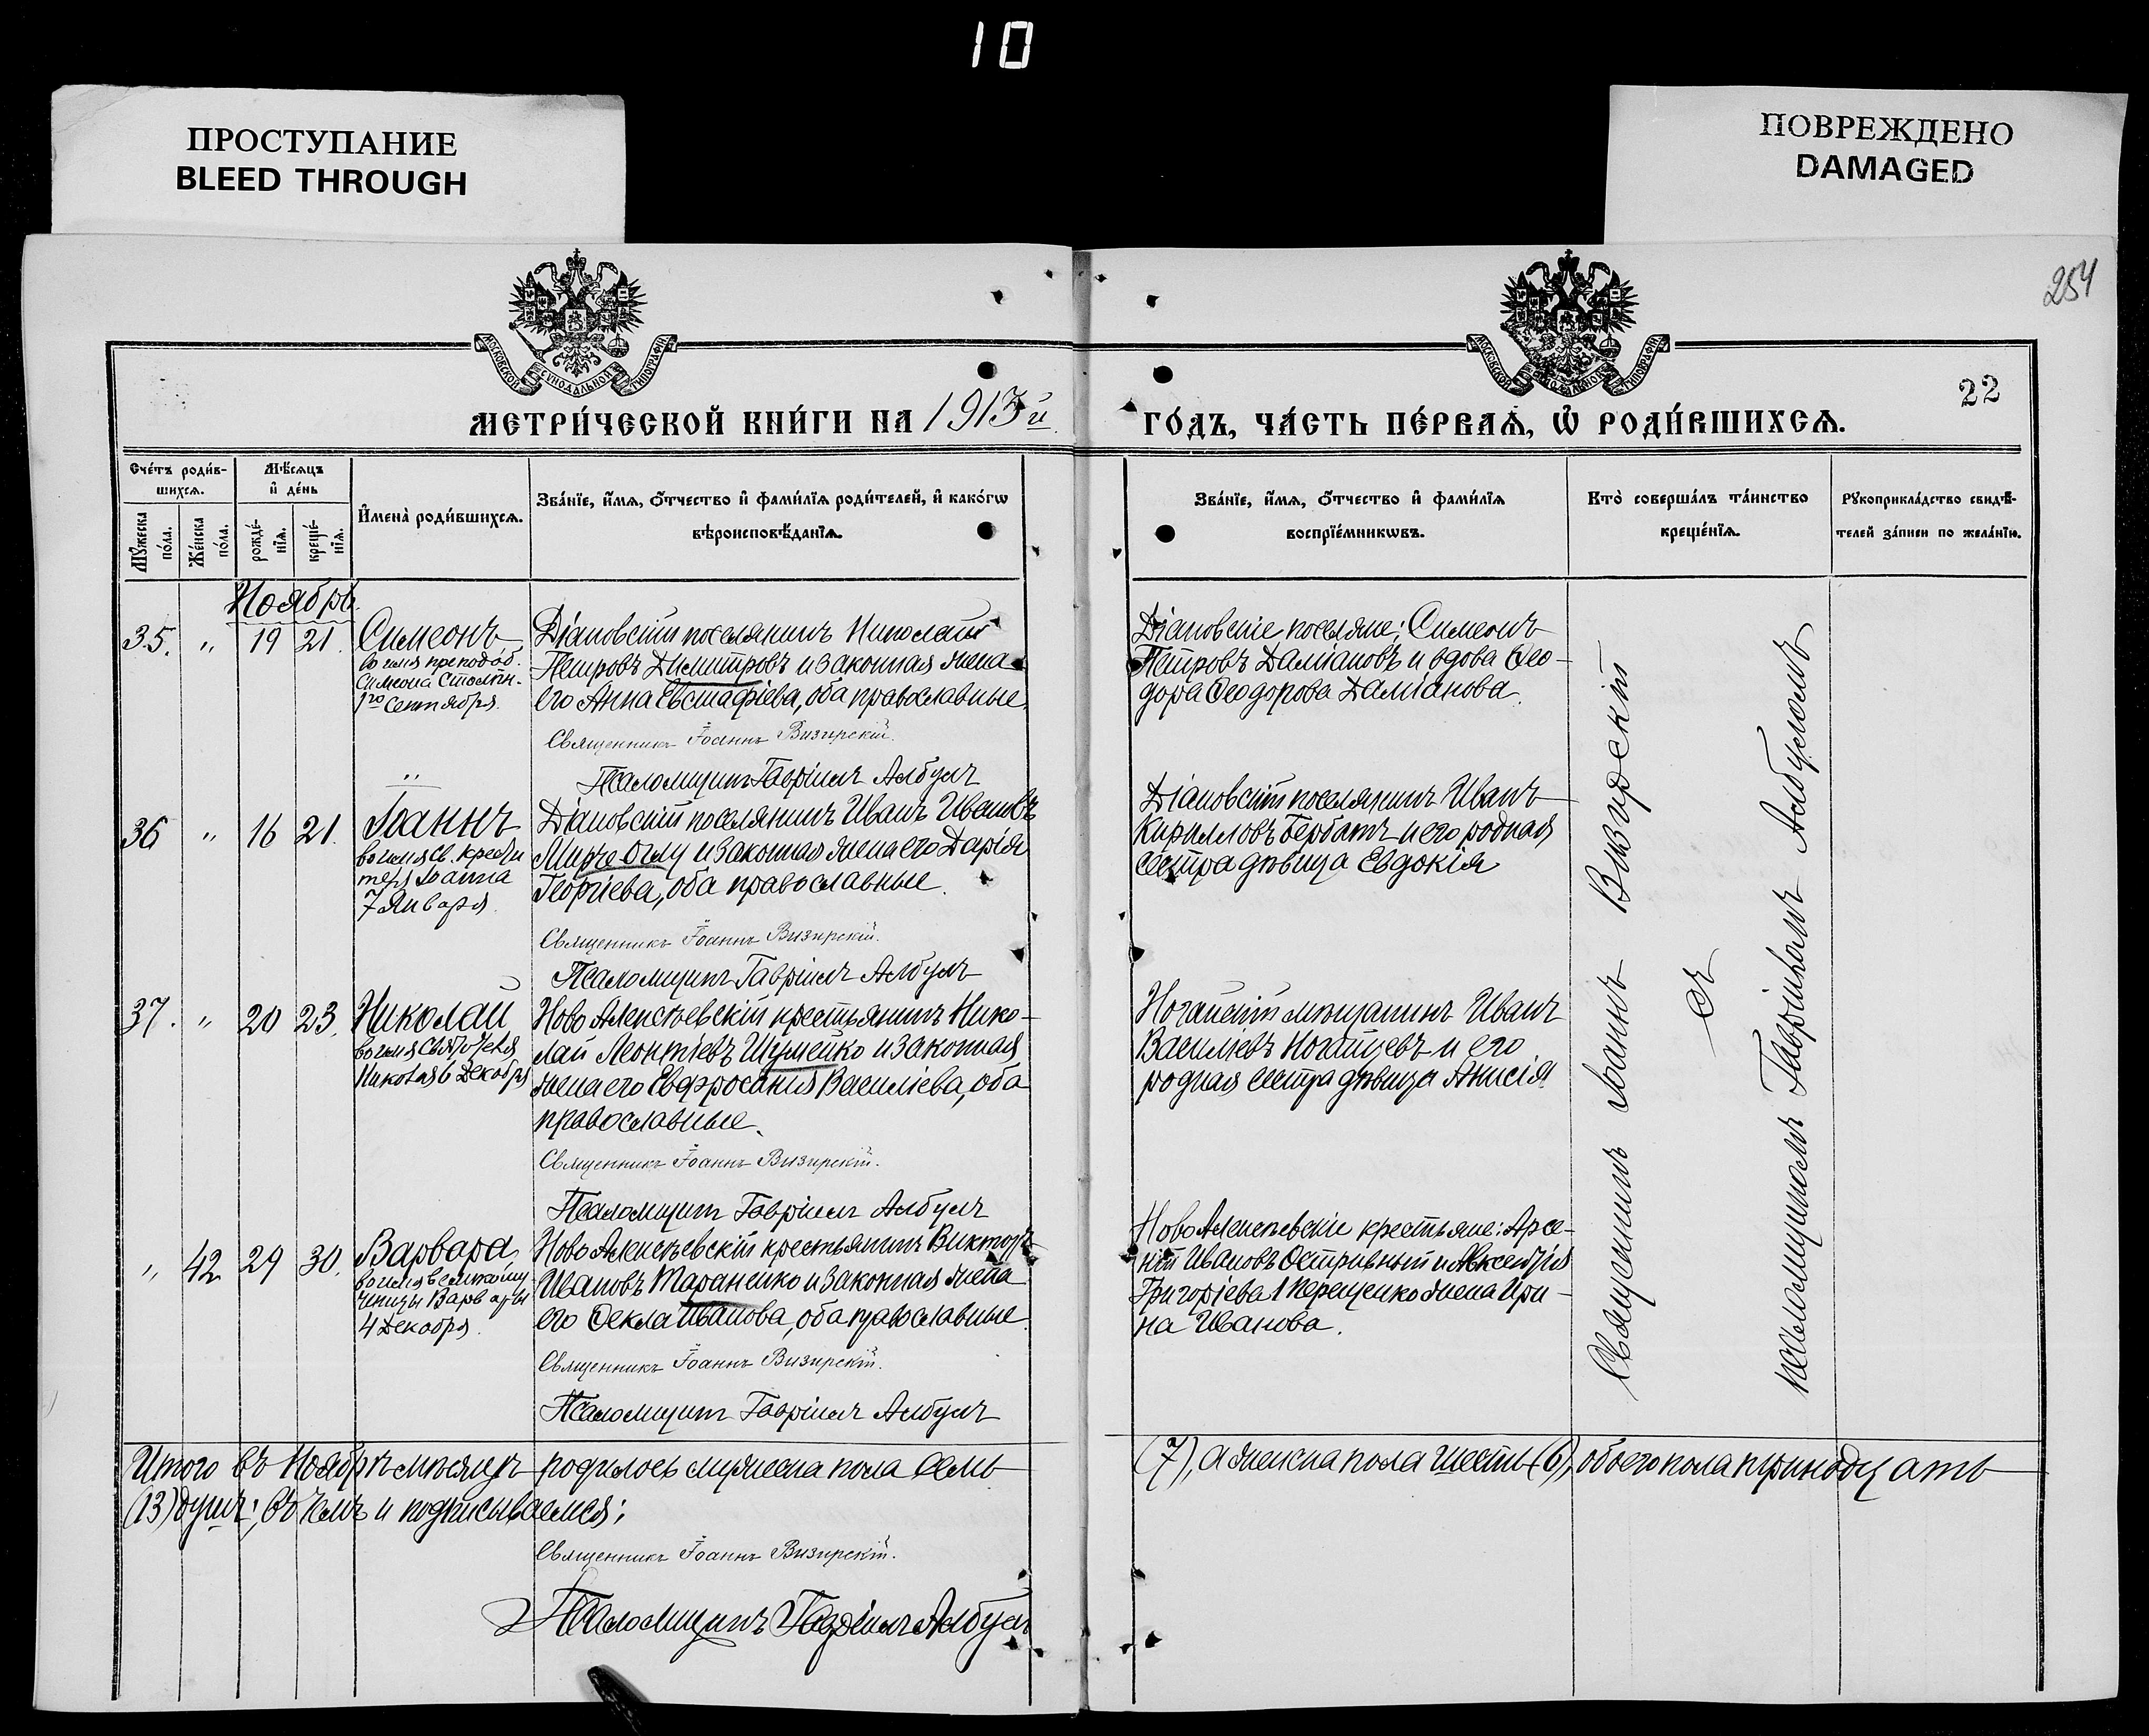 10
ПРОСТУПАНИЕ
BLEED THROUGH
ПОВРЕЖДЕНО
DAMAGED
254
22
МОСКОВСКОЙ СѴНОДАЛЬНОЙ ТИПОГРАФІИ
МОСКОВСКОЙ СѴНОДАЛЬНОЙ ТИПОГРАФІИ
МЕТРИ́ЧЕСКОЙ КНИ́ГИ НА 1913й ГО́ДЪ, ЧА́СТЬ ПЕ́РВАѦ, Ѡ҆ РОДИ́ВШИХСѦ.
Сче́тъ роди́в-
шихсѧ.
Мꙋ́жеска
по́ла.
Же́нска
по́ла.
Мѣ́сѧцъ
и҆ де́нь
рожде́-
нїѧ.
креще́-
нїѧ.
И҆мена̀ роди́вшихсѧ.
Зва́нїе, и҆́мѧ, ѻ҆́тчество и҆ фами́лїѧ роди́телей, и҆ како́гѡ
вѣроисповѣ́данїѧ.
Зва́нїе, и҆́мѧ, ѻ҆́тчество и҆ фами́лїѧ
воспрїе́мникѡвъ.
Кто̀ соверша́лъ та́инство
креще́нїѧ.
Рꙋкоприкла́дство свидѣ́-
телей за́писи по жела́нїю.
Ноябрь.
35. " 19 21.
Симеонъ
во имя преподоб.
Симеона Столпн.
1го Сентября.
Діановскій поселянинъ Николай
Петровъ Димитровъ и законная жена
его Анна Евстафіева, оба православные.
Священникъ Іоаннъ Визирскій.
Псаломщикъ Гавріилъ Албулъ
Діановскіе поселяне: Симеонъ
Петровъ Даміановъ и вдова Ѳео-
дора Ѳеодорова Даміанова.
36 " 16 21.
Іоаннъ
во имя св. крести
теля Іоанна
7 Января.
Діановскій поселянинъ Иванъ Ивановъ
Мирче Оглу и законная жена его Дарія
Георгіева, оба православные.
Священникъ Іоаннъ Визирскій.
Псаломщикъ Гавріилъ Албулъ
Діановскій поселянинъ Иванъ
Кирилловъ Бербатъ и его родная
сестра дѣвица Евдокія
37. " 20 23.
Николай
во имя Святителя
Николая 6 Декабря
Ново Алексѣевскій крестьянинъ Нико-
лай Леонтіевъ Шумейко и законная
жена его Евфросинія Василіева, оба
православные.
Священникъ Іоаннъ Визирскій.
Псаломщикъ Гавріилъ Албулъ
Ногайскій мѣщанинъ Иванъ
Василіевъ Ногайцевъ и его
родная сестра дѣвица Анисія
" 42. 29 30.
Варвара
во имя великому-
ченицы Варвары
4 Декабря.
Ново Алексѣевскій крестьянинъ Викторъ
Ивановъ Тараненко и законная жена
его Ѳекла Иванова, оба православные.
Священникъ Іоаннъ Визирскій.
Псаломщикъ Гавріилъ Албулъ
Ново Алексѣевскіе крестьяне: Арсе-
ній Ивановъ Остривный и
Григоріева жена Ири-
на Иванова.
Священникъ Іоаннъ Визирскій
съ
псаломщикомъ Гавріиломъ Албуломъ
Итого въ Ноябрѣ мѣсяцѣ родилось мужеска пола семь (7), а женска пола шесть (6), обоего пола тринадцать
(13) душъ; въ чемъ и подписываемся;
Священникъ Іоаннъ Визирскій.
Псаломщикъ Гавріилъ Албулъ